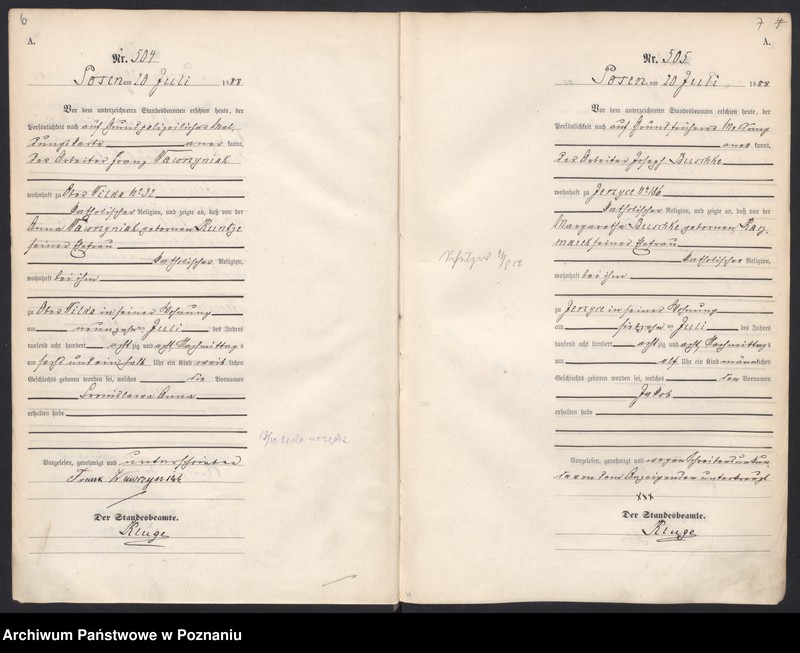 6
A.
Nr. 504
Posen am 20 Juli 1888
Vor dem unterzeichneten Standesbeamten erschien heute, der
Persönlichkeit nach auf Grund polizeilicher Mel-
dungskarte aner kannt,
der Arbeiter Franz Wawrzyniak
wohnhaft zu Ober Wilda No 32
katholischer Religion, und zeigte an, daß von der
Anna Wawrzyniak gebornen Kuntze
seiner Ehefrau
katholischer Religion,
wohnhaft bei ihm
zu Ober Wilda in seiner Wohnung
am neunzehn ten Juli des Jahres
tausend acht hundert acht zig und acht Nachmittag s
um sechs und ein halb Uhr ein Kind weib lichen
Geschlechts geboren worden sei, welches die Vornamen
Bronislawa Anna
erhalten habe
Vorgelesen, genehmigt und unterschrieben
Frank Wawrzyniak
Der Standesbeamte.
Kluge
7
A.
Nr. 505
Posen am 20 Juli 1888
Vor dem unterzeichneten Standesbeamten erschien heute, der
Persönlichkeit nach auf Grund früherer Meldung
aner kannt,
der Arbeiter Joseph Buschke
wohnhaft zu Jerzyce No 186
katholischer Religion, und zeigte an, daß von der
Margaretha Buschke gebornen Kacz-
marek seiner Ehefrau
katholischer Religion,
wohnhaft bei ihm
zu Jerzyce in seiner Wohnung
am ten Juli des Jahres
tausend acht hundert acht zig und acht, Nachmittag s
um elf Uhr ein Kind männlichen
Geschlechts geboren worden sei, welches den Vornamen
Jakob
erhalten habe
Vorgelesen, genehmigt und wegen Schreibensunkun-
de von dem Anzeigenden unterkreuzt
xxx
Der Standesbeamte.
Kluge
Archiwum Państwowe w Poznaniu